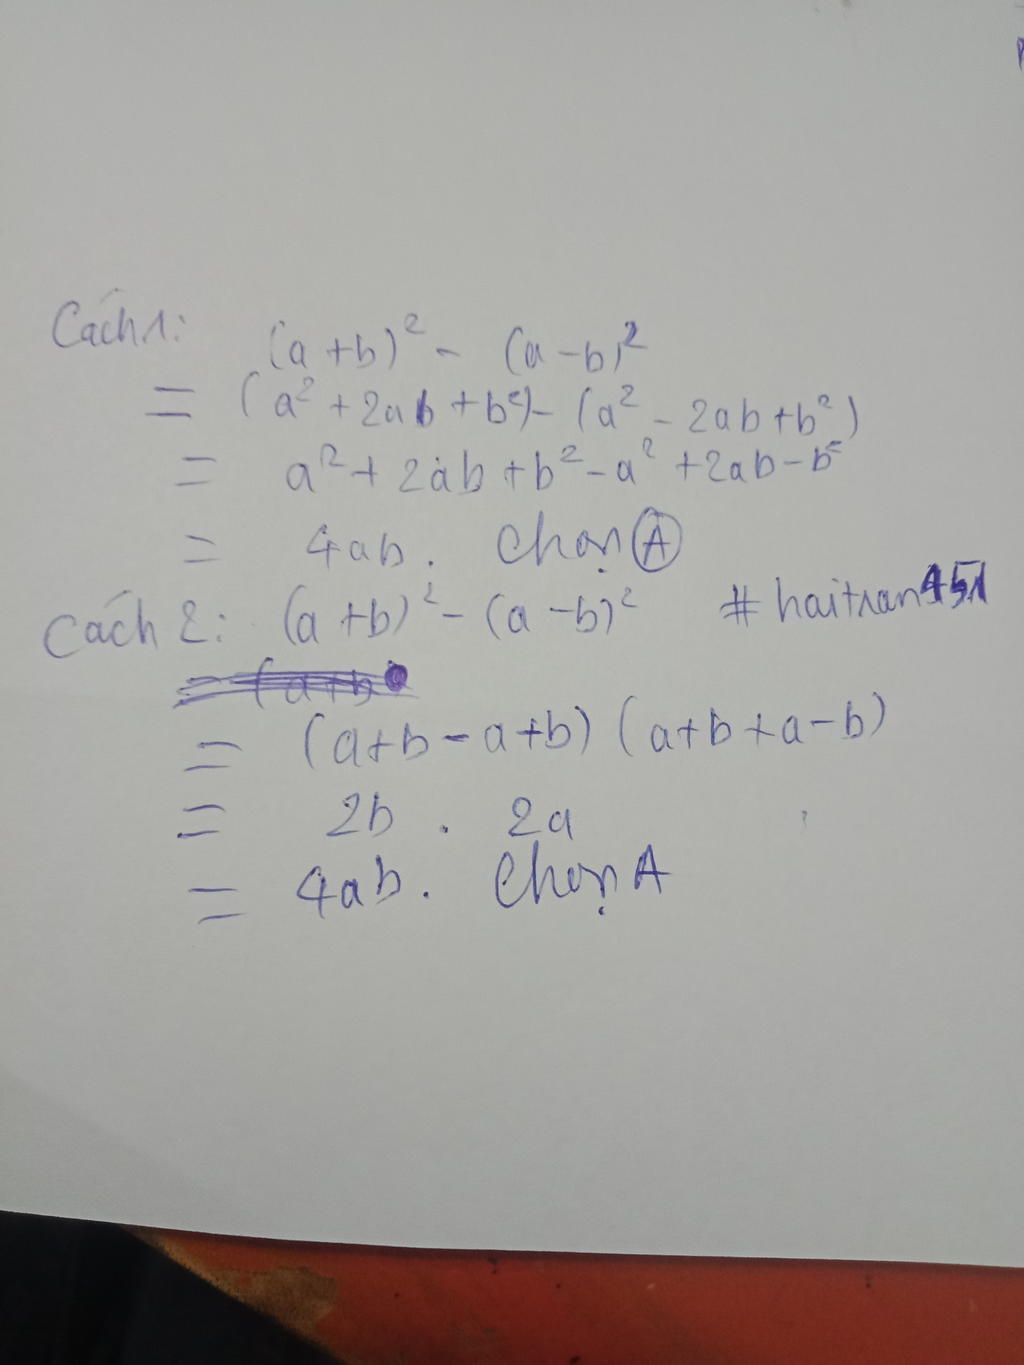 Cách 1: (a+b)² - (a-b)²
= (a² + 2ab + b²) - (a² - 2ab + b²)
= a² + 2ab + b² - a² + 2ab - b²
= 4ab. Chọn A
Cách 2: (a+b)² - (a-b)² #haitran451
= (a+b
= (a+b-a+b) (a+b+a-b)
= 2b . 2a
= 4ab. Chọn A